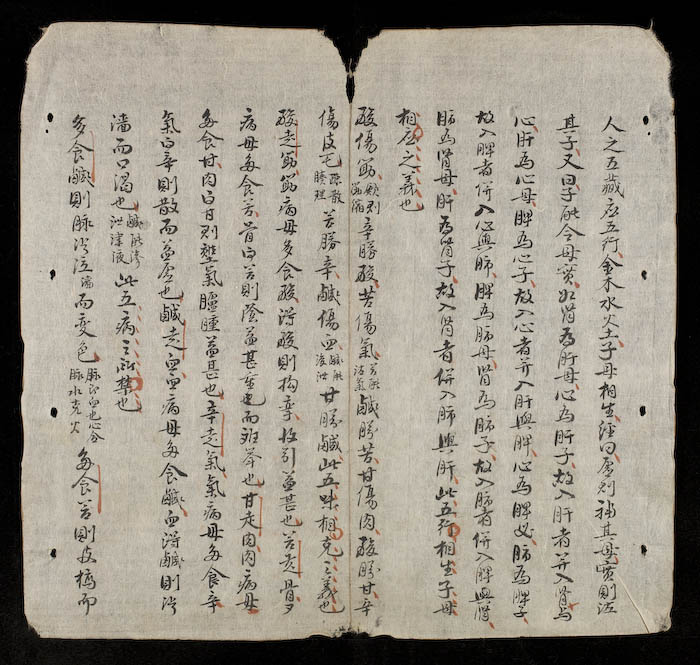 人之五藏应五行金木水火土子母相生經曰虛則補其母實則泻
其子又曰子能令母實如腎為肝母心為肝子故入肝者并入腎与
心肝為心母脾為心子故入心者并入肝與脾心為脾母肺為脾子
故入脾者併入心與肺脾為肺母腎為肺子故入肺者併入脾與腎
肺為腎母肝為腎子故入腎者併入肺與肝此五行相生子母
相应之義也
酸傷筋斂則筋縮辛勝酸苦傷氣苦能泻氣鹹勝苦甘傷肉酸勝甘辛
傷皮毛疎散腠理苦勝辛鹹傷血鹹能滲泄甘勝鹹此五味相克之義也
酸走筋筋病毋多食酸得酸則拘挛收引益甚也苦走骨々
病毋多食苦骨得苦則陰益甚重也而难举也甘走肉肉病毋
多食甘肉得甘則壅氣臚腫益甚也辛走氣氣病毋多食辛
氣得辛則散而益虛也鹹走血血病毋多食鹹血得鹹則凝
濇而口渴也鹹能滲泄津液此五病之所禁也
多食鹹則脉凝泣濇而变色脉即血也心合脉水克火多食苦則皮槁而